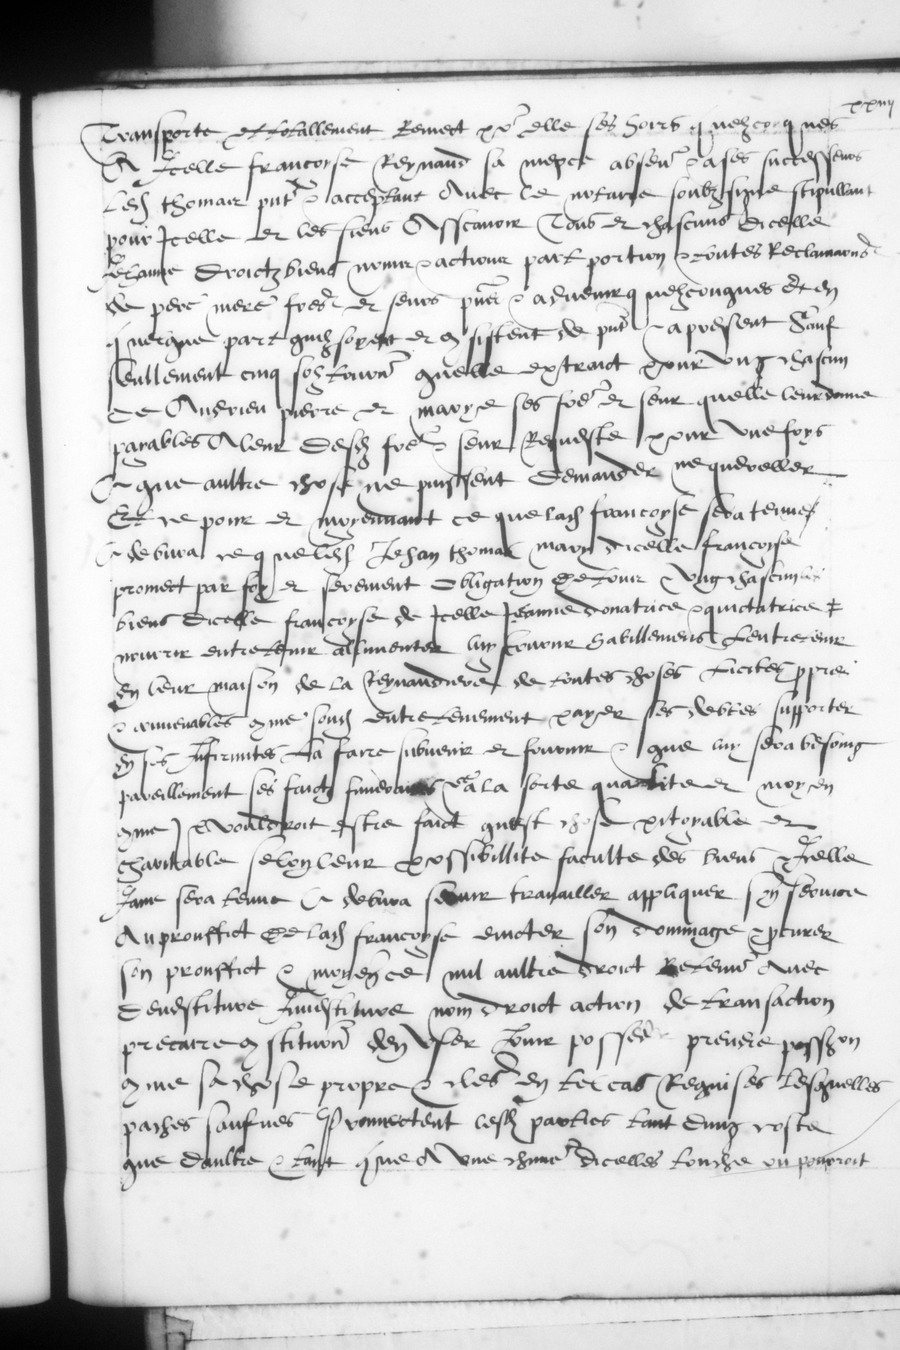 xxiiij
Transporte et totallement Remect pr elle ses hoirs quelzconques
A Icelle francoyse Reynaud sa niepce absent & a ses successeurs
Led thomas pnt & acceptant Avec le notaire soubzsigne stipullant
pour Icelle et les siens Asscavoir Tous et chascuns dicelle
Jehanne droictz biens noms & actions part portion & toutes Reclamaons
de pere mere freres et seurs pnts & advenir quelzconques et en
quelque part quilz soyent et consistent de pnt & a present Sauf
seullement cinq solz tournoys quelle extraict pour ung chascun
de Andrieu pierre et marye ses freres et seur quelle leur donne
payables A leur desd freres & seur Requeste pour une foys
Et que aultre chose ne puissent demander ne quereller
Et ce pour et moyennant ce que lad francoyse sera tenue
Et debvra ce que led Jehan thomas mary dicelle francoyse
promect par foy et serement obligation de tous Ung chascuns les
biens dicelle francoyse de Icelle Jeanne donatrice & quictatrice
nourrir entretenir alimenter luy fournir habillemens Lentretenir
En leur maison de la Reynaudiere de toutes choses Licites ppres
& convenables come sond entretenement payer ses debtes supporter
En ses Infirmites La faire subvenir et fournir & que luy sera besoing
pareillement ses faictz funeraires a la sorte qualite et moyen
come vouldroit Estre faict quest chose pitoyable et
charitable selon leur possibillite faculte des biens & Icelle
Jane sera tenue Et debvra servir travailler appliquer son service
Au prouffict de lad francoyse eviter son dommage & pcurer
son prouffict & moyen ce nul aultre droict Retenu Avec
devestiture Investiture nom droict action de transaction
precaire constitution den User Jouir posseder prendre possession
come sa chose propre & cles En tel cas Requises Lesquelles
paches saulves promectent lesd parties tant dung coste
que daultre & tant que A une chune dicelles touche ou pourroit